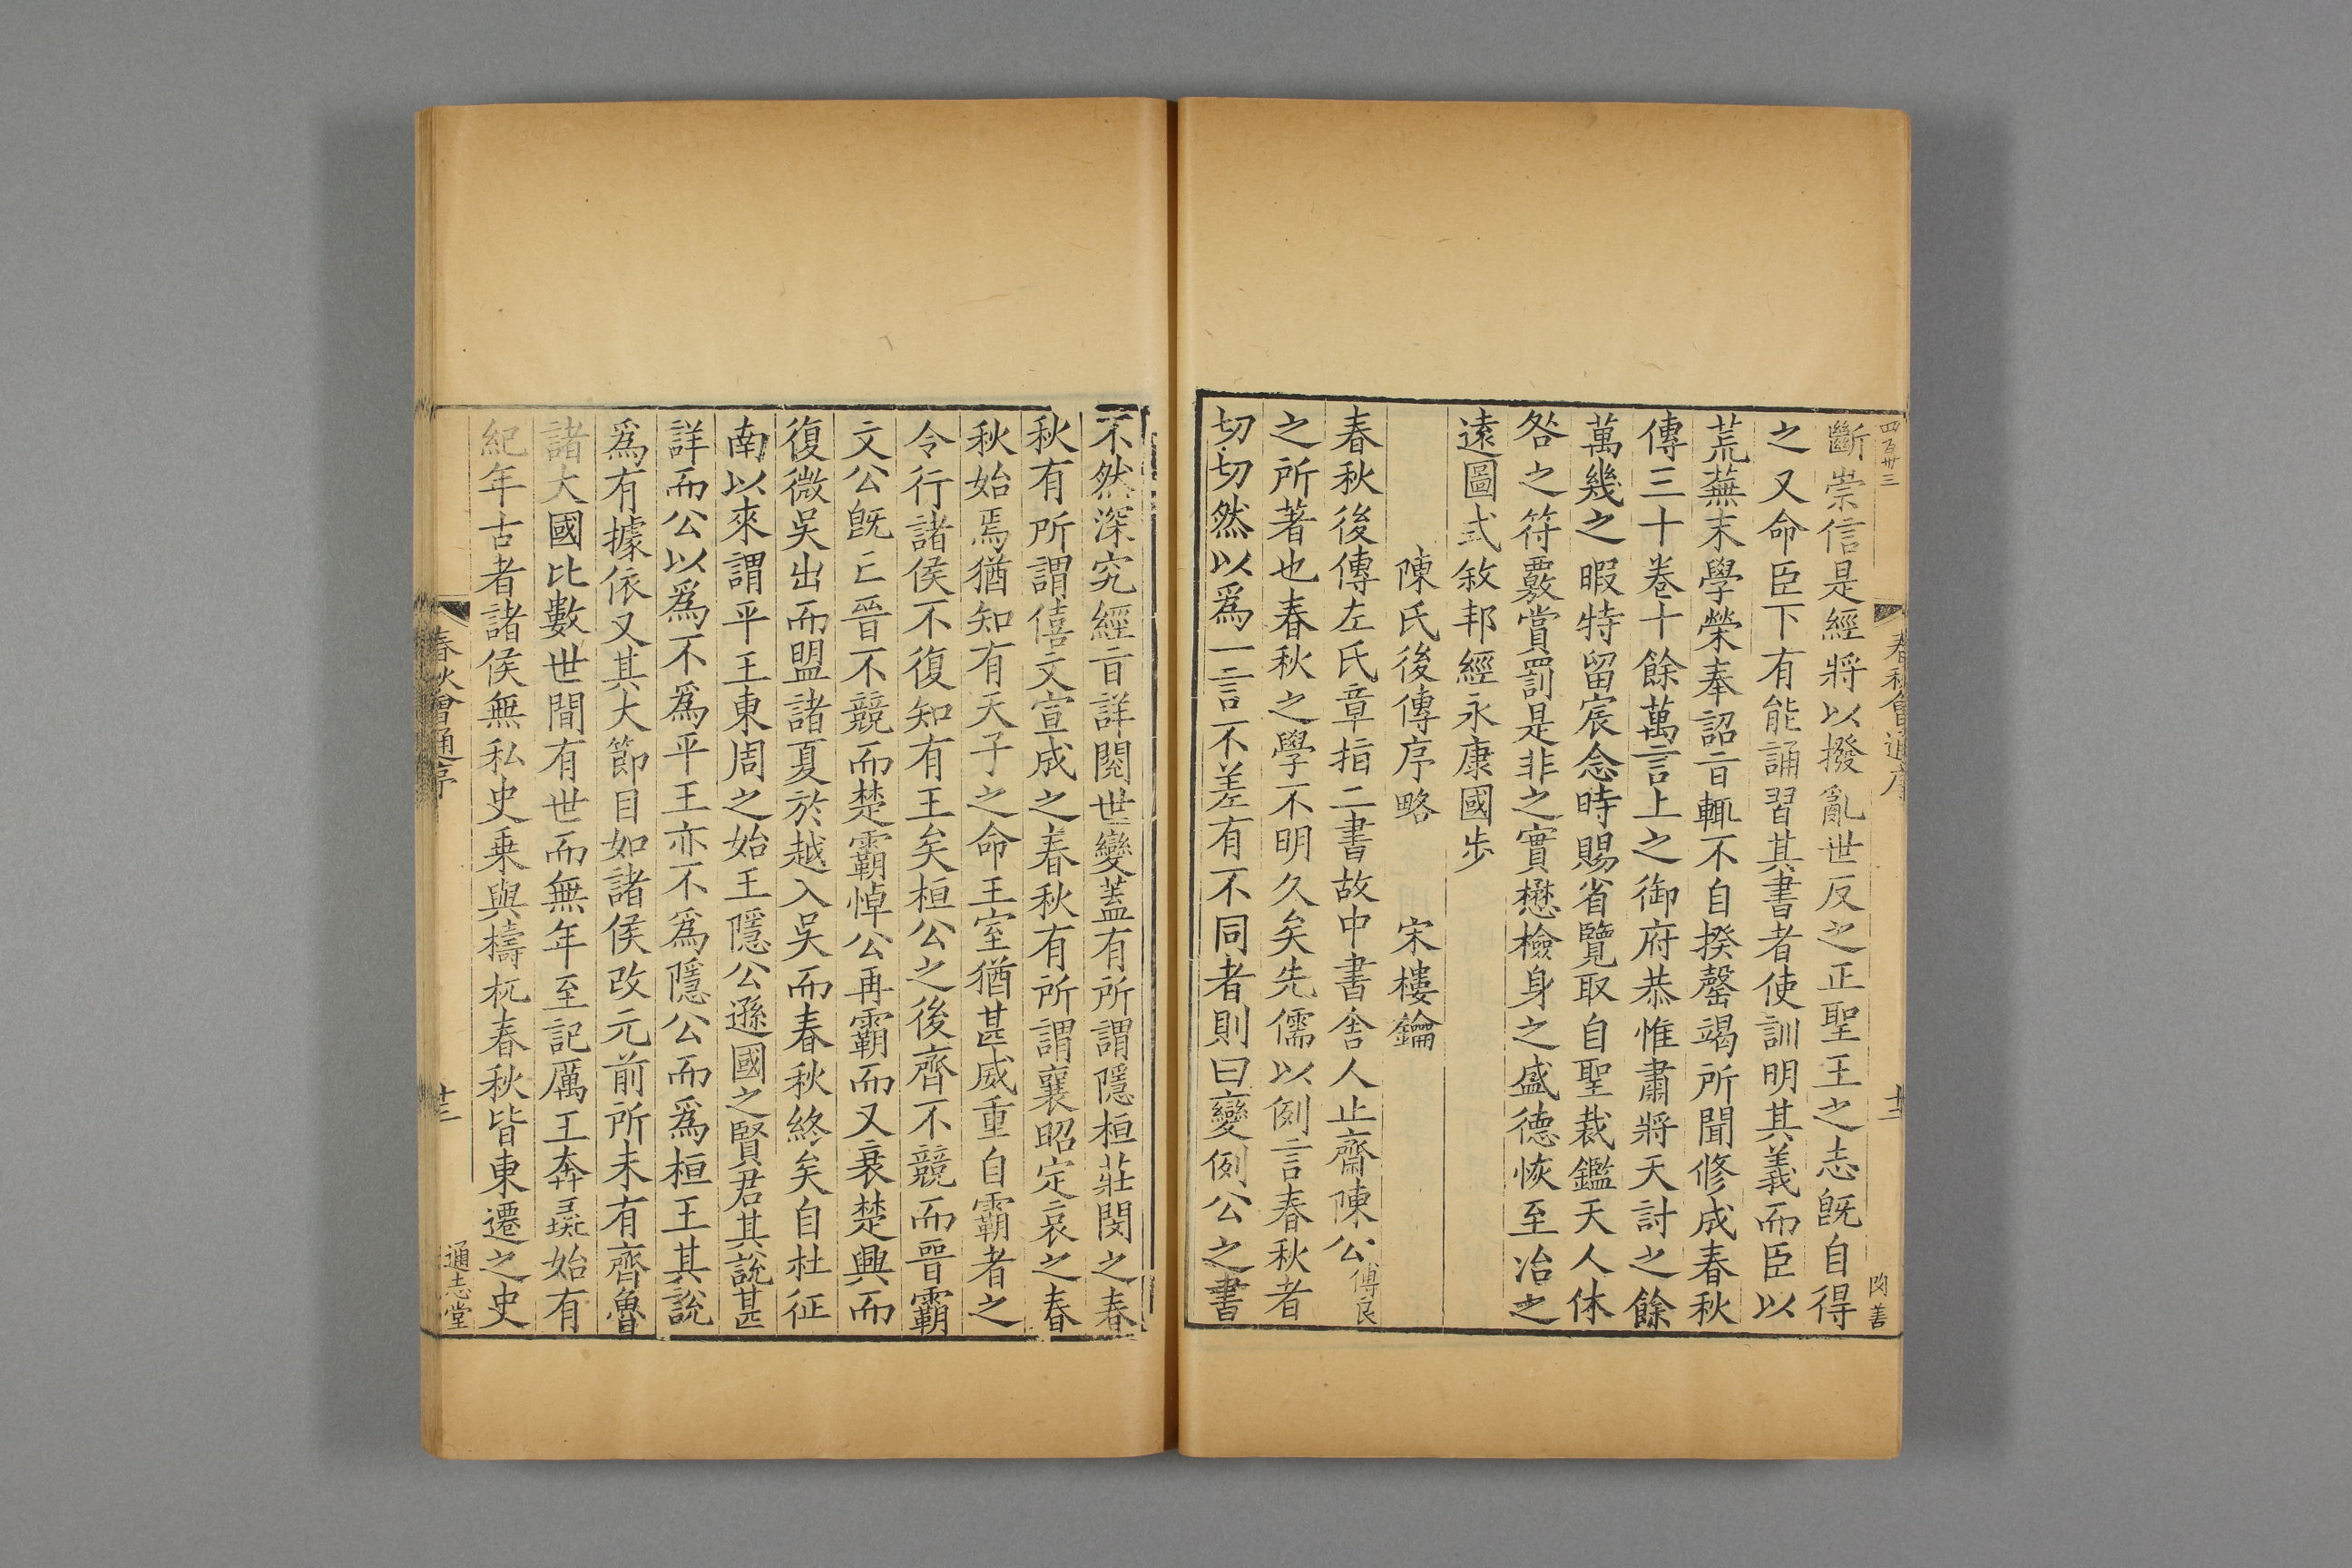 四百卅三
春秋會通序
十二
斷崇信是經將以撥亂世反之正聖王之志旣自得
之又命臣下有能誦習其書者使訓明其義而臣以
荒蕪末學榮奉詔㫖輒不自揆罄竭所聞修成春秋
傳三十卷十餘萬言上之御府恭惟肅將天討之餘
萬幾之暇特留宸念時賜省覽取自聖裁鑑天人休
咎之符覈賞罰是非之實懋檢身之盛德恢至治之
遠圖式敘邦經永康國步
陳氏後傳序略 宋樓鑰
春秋後傳左氏章指二書故中書舍人止齋陳公傅良
之所著也春秋之學不明久矣先儒以例言春秋者
切切然以爲一言不差有不同者則曰變例公之書
不然深究經㫖詳閱世變蓋有所謂隱桓莊閔之春
秋有所謂僖文宣成之春秋有所謂襄昭定哀之春
秋始焉猶知有天子之命王室猶甚威重自霸者之
令行諸侯不復知有王矣桓公之後齊不競而晉霸
文公旣亡晉不競而楚霸悼公再霸而又衰楚興而
復微吳出而盟諸夏於越入吳而春秋終矣自杜征
南以來謂平王東周之始王隱公遜國之賢君其說甚
詳而公以爲不爲平王亦不爲隱公而爲桓王其說
爲有據依又其大節目如諸侯改元前所未有齊魯
諸大國比數世間有世而無年至記厲王奔彘始有
紀年古者諸侯無私史乗與檮杌春秋皆東遷之史
春秋會通序
十三
通志堂